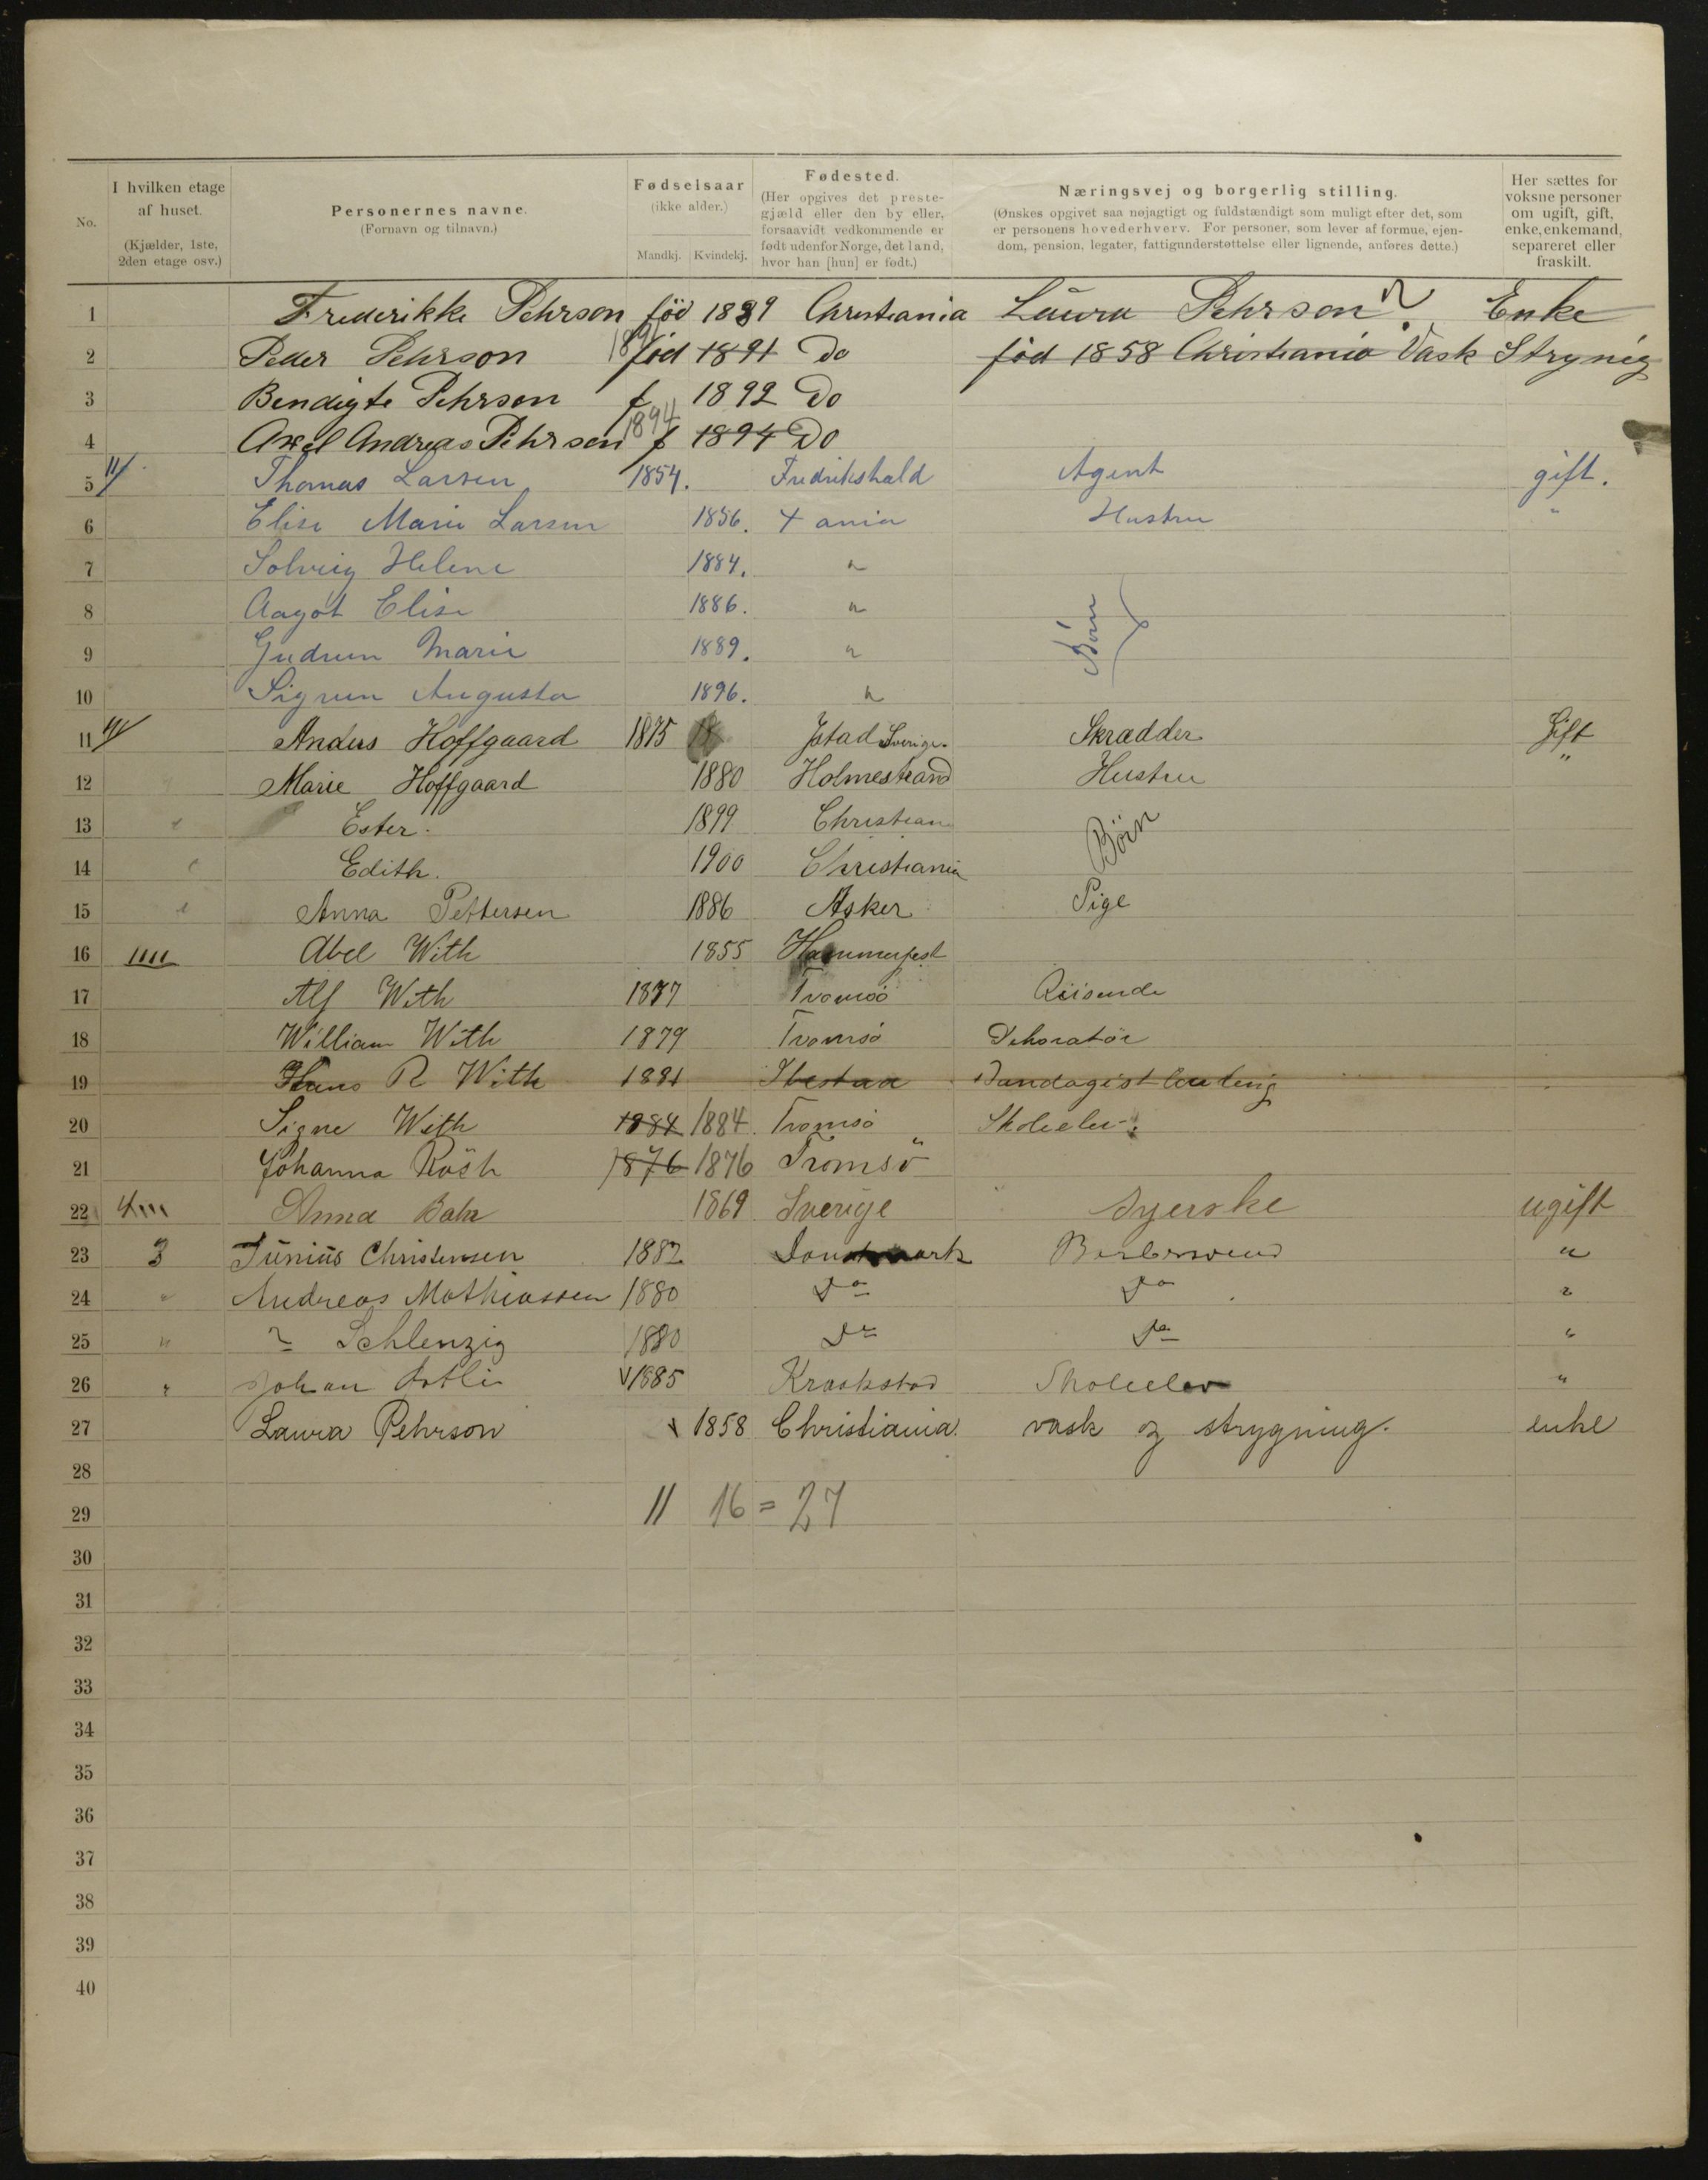 No. I hvilken etage af huset. (Kjælder, 1ste, 2den etage osv.) Personernes navne. (Fornavn og tilnavn.) Fødselsaar (ikke alder.) Mandkj. Kvindekj. Fødested. (Her opgives det prestegjæld eller den by eller, forsaavidt vedkommende er født udenfor Norge, det land, hvor han [hun] er født.) Næringsvej og borgerlig stilling. (Ønskes opgivet saa nøjagtigt og fuldstændigt som muligt efter det, som er personens hovederhverv. For personer, som lever af formue, ejendom, pension, legater, fattigunderstøttelse eller lignende, anføres dette.) Her sættes for voksne personer om ugift, gift, enke, enkemand, separeret eller fraskilt.
1 Frederikke Pehrson föd 1889 Christiania Laura Pehrson Enke
2 Peder Pehrson 1891 föd 1891 Do föd 1858 Christiania Vask Strynig
3 Bendigte Pehrson f 1892 Do
4 Axel Andreas Pehrson 1894 f 1894 Do
5 II Thomas Larsen 1854. Fredrikshald Agent gift.
6 Elise Marie Larsen 1856. Xania Hustru "
7 Solveig Helene 1884. "
8 Aagot Elise 1886. " Børn
9 Gudrun Marie 1889. "
10 Sigrun Augusta 1896. "
11 III Anders Hoffgaard 1875 18 Jstad Sverige Skrædder Gift
12 Marie Hoffgaard 1880 Holmestrand Hustru "
13 Ester. 1899 Christian Børn
14 Edith. 1900 Christiania
15 Anna Pettersen 1886 Asker Pige
16 IIII Abel With 1855 Hammerfest
17 Alf With 1877 Tromsö Reisende
18 William With 1879 Tromsö Dekoratør
19 Hans R With 1881 Ibestad Bandagistlærling
20 Signe With 1884 1884 Tromsö Skoleelev
21 Johanna Rösh 1876 1876 Tromsö
22 Anna Bahr 1869 Sverige Syerske ugift
23 3 Junius Christensen 1882 Danmark Barbersvend "
24 " Andreas Mathiassen 1880 Do Do "
25 " Schlenzig 1880 Do Do "
26 " Johan 1885 Kraakstad Skoleelev "
27 Laura Pehrson 1858 Christiania vask og strygning. enke
28
29 11 16 = 27
30
31
32
33
34
35
36
37
38
39
40